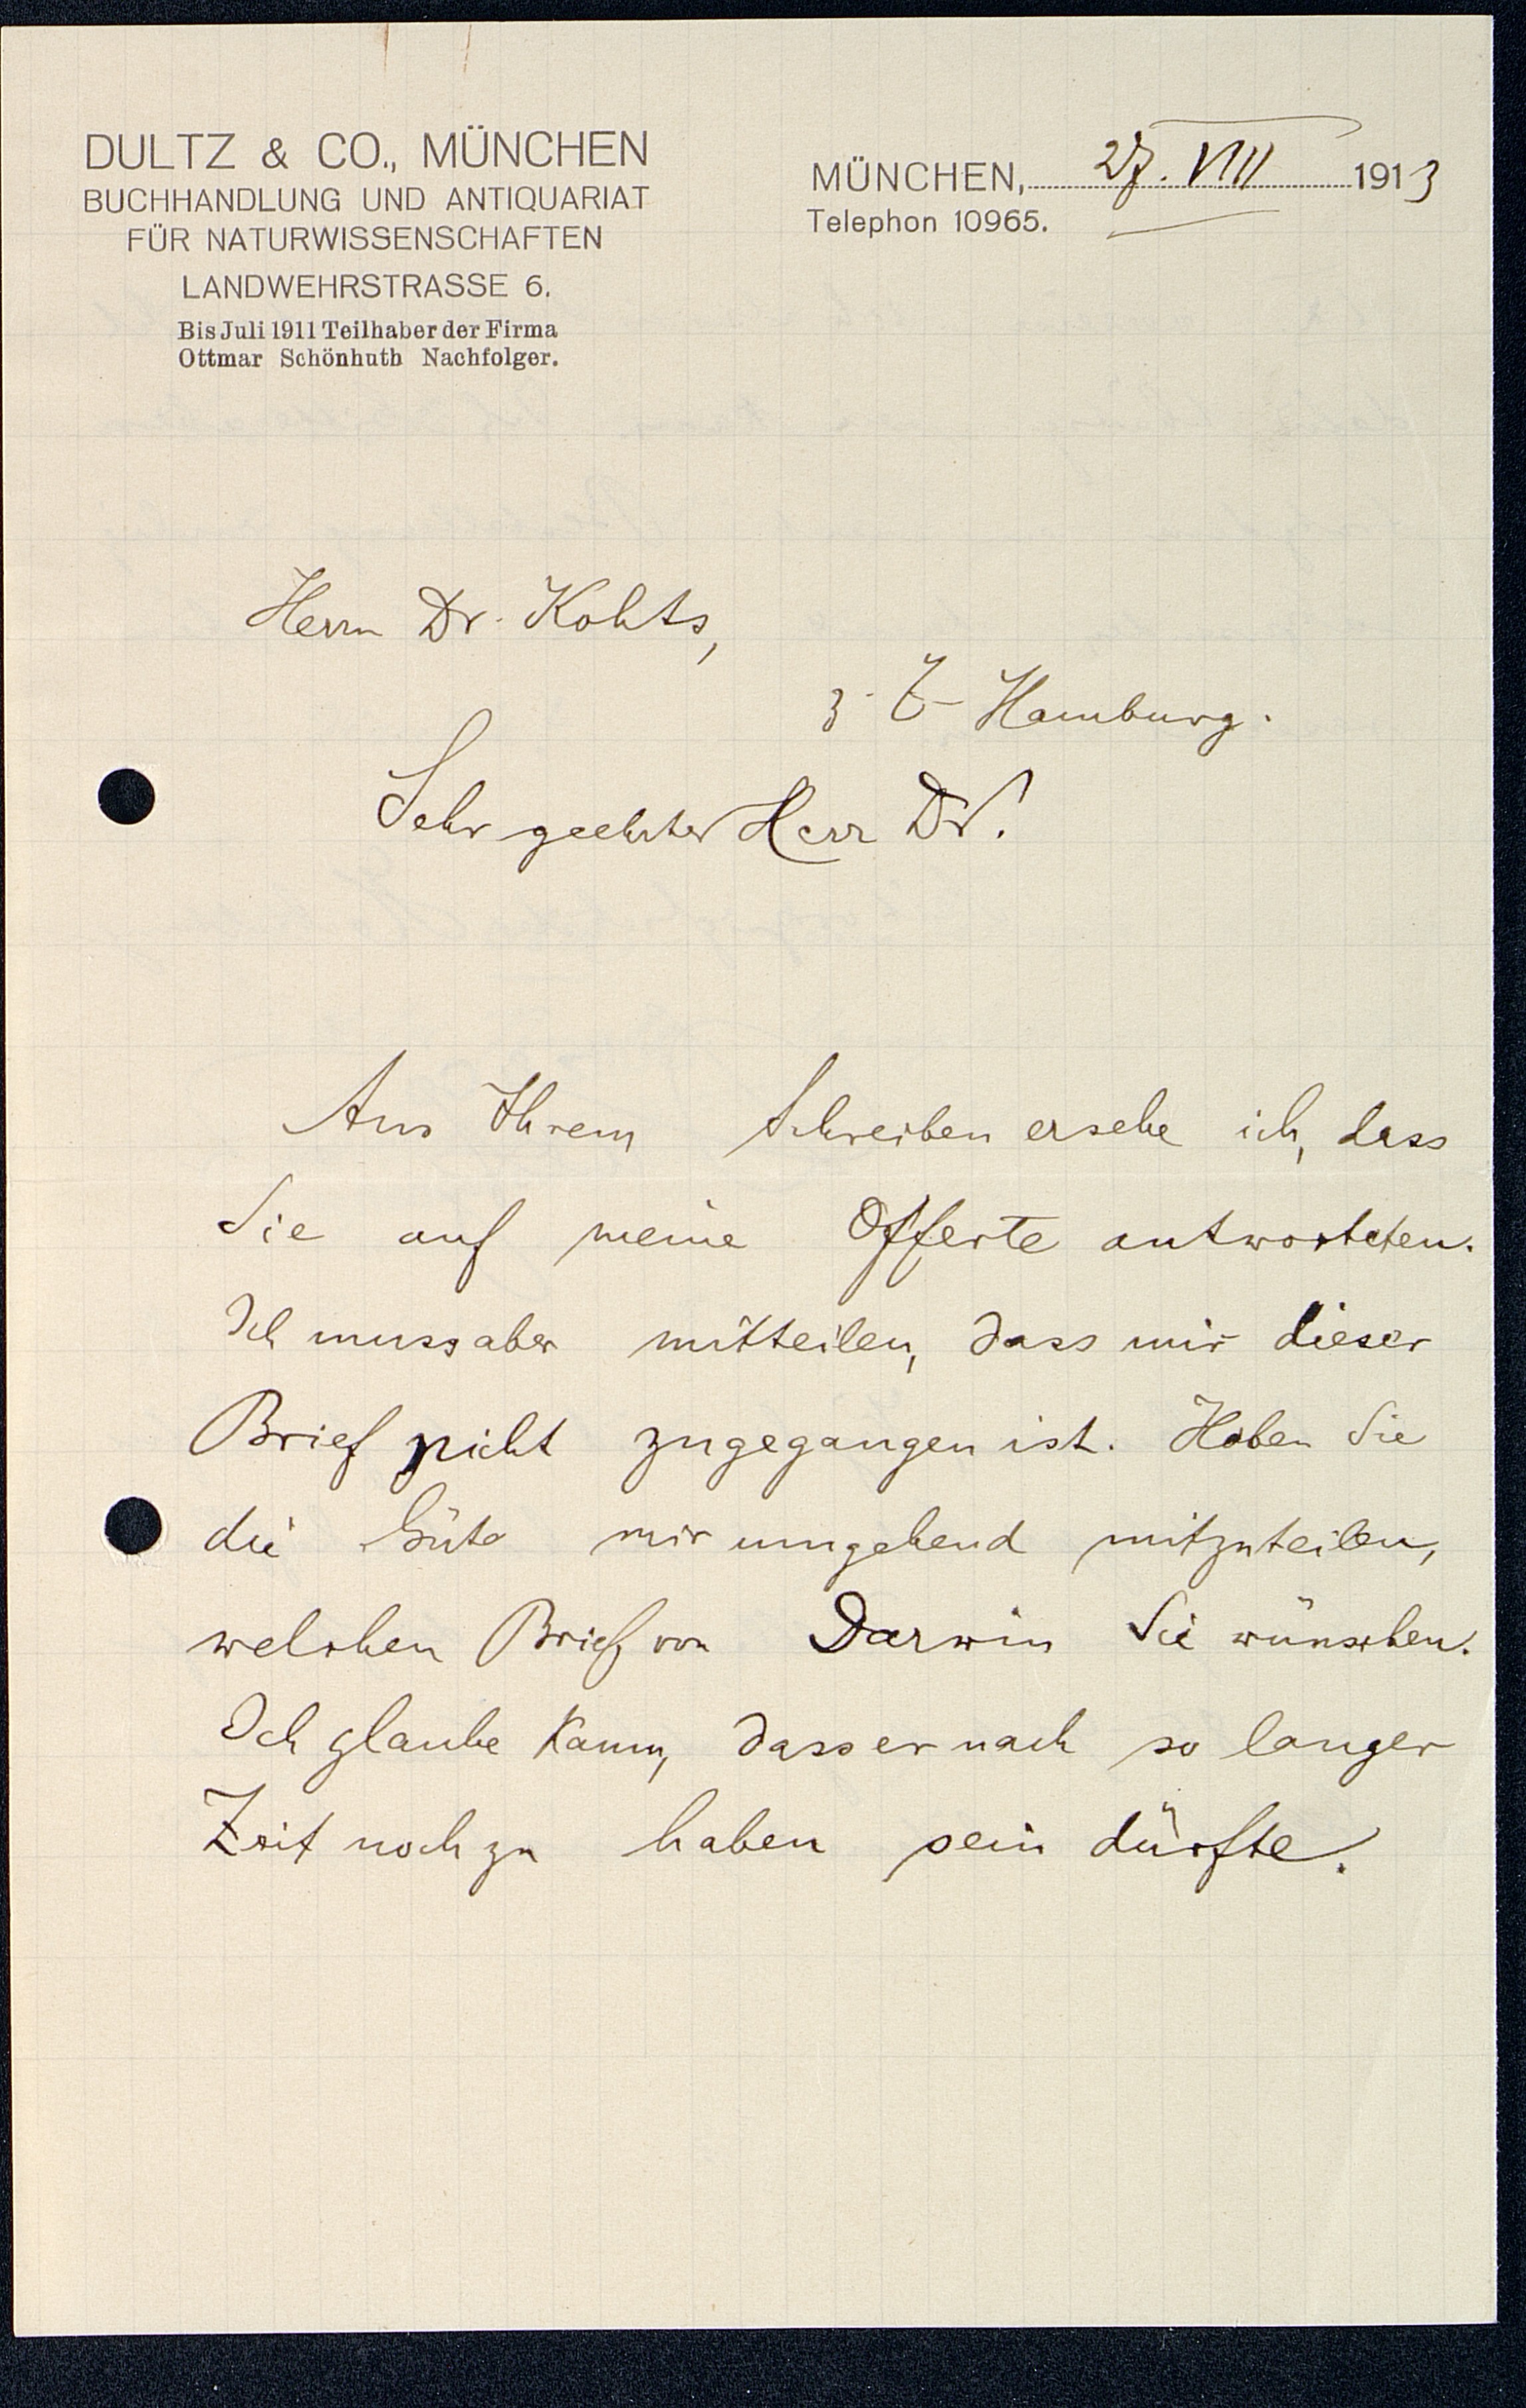 DULTZ & CO., MÜNCHEN
BUCHHANDLUNG UND ANTIQUARIAT
FÜR NATURWISSENSCHAFTEN
LANDWEHRSTRASSE 6.
Bis Juli 1911 Teilhaber der Firma
Ottmar Schönhuth Nachfolger.
MÜNCHEN, 27. VIII 1913
Telephon 10965.
Herrn Dr. Kohts,
z. Z. Hamburg.
Sehr geehrter Herr Dr!
Aus Ihrem Schreiben ersehe ich, dass
Sie auf meine Offerte antworteten.
Ich muss aber mitteilen, dass mir dieser
Brief nicht zugegangen ist. Haben Sie
die Güte mir umgehend mitzuteilen,
welchen Brief von Darwin Sie wünschen.
Ich glaube kaum, dass er nach so langer
Zeit noch zu haben sein dürfte.